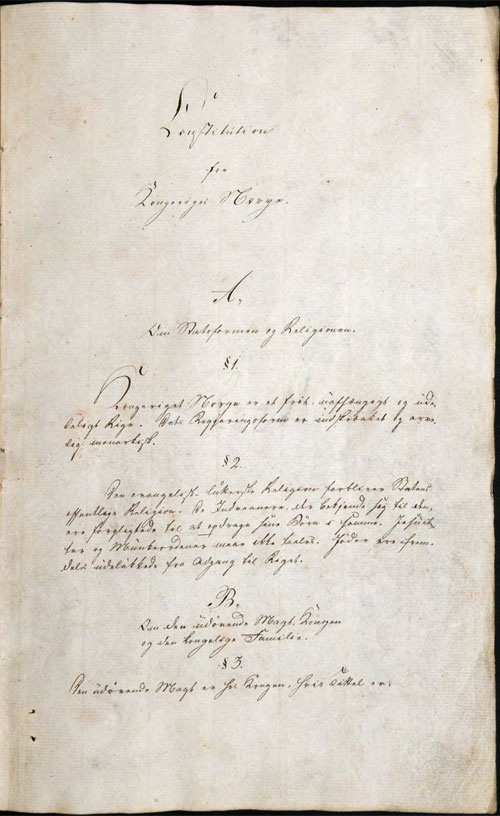 Constitution
for
Kongeriget Norge.
A,
Om Statsformen og Religionen.
§ 1.
Kongeriget Norge er et frit, uafhængigt og ude-
leligt Rige. Dets Regjeringsform er indskrænket og arve-
lig monarkisk.
§ 2.
Den evangelisk-lutherske Religion forbliver Statens
offentlige Religion. De Indvaanere, der bekjende sig til den,
ere forpligtede til at opdrage sine Børn i samme. Jesuit-
ter og Munkeordener maae ikke taales. Jøder ere frem-
deles udelukkede fra Adgang til Riget.
B,
Om den udøvende Magt, Kongen
og den kongelige Familie.
§ 3.
Den udøvende Magt er hos Kongen, hvis Tittel er: